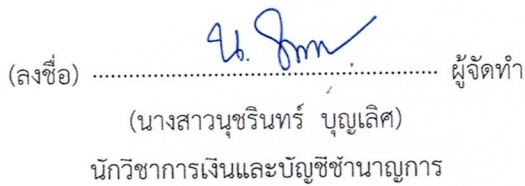 (ลงชื่อ) ........................................................ ผู้จัดทำ
(นางสาวนุชรินทร์ บุญเลิศ)
นักวิชาการเงินและบัญชีชำนาญการ